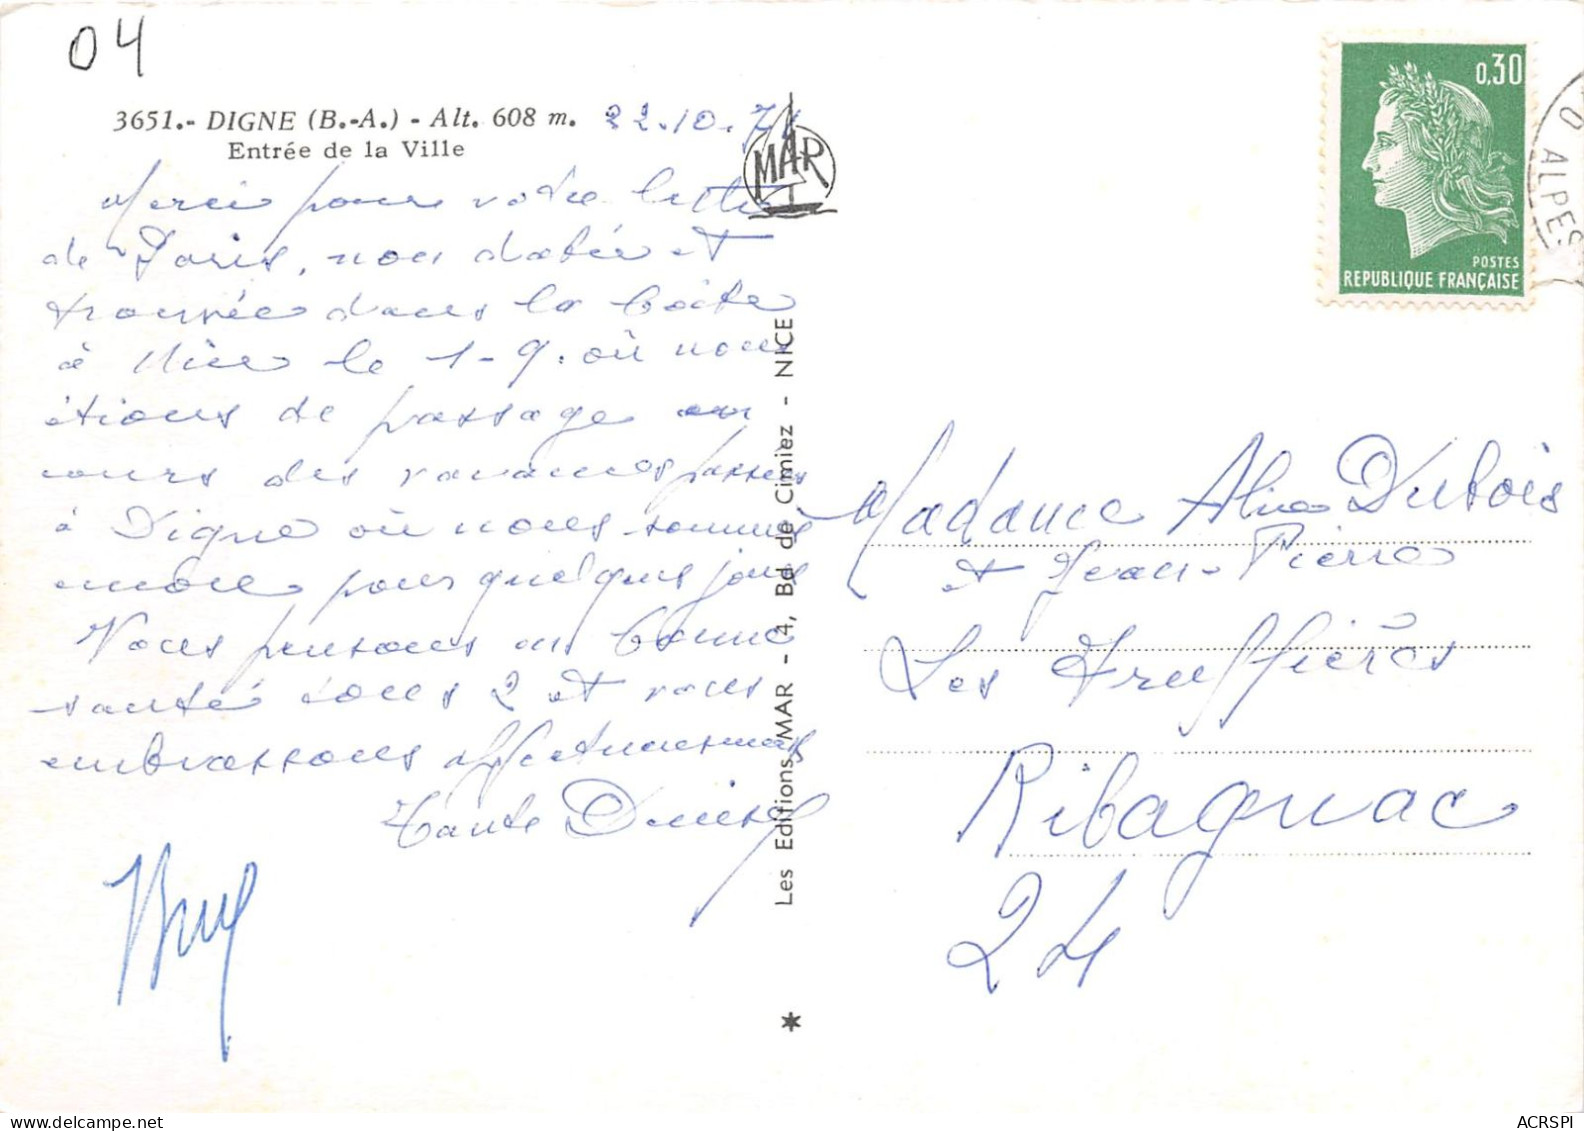 04
3651.- DIGNE (B.-A.) - Alt. 608 m.
Entrée de la Ville
22.10.71
Merci pour votre lettre
de Paris, non datée et
trouvée dans la boîte
à Nice le 1-9. où nous
étions de passage au
cours des vacances passées
à Digne où nous sommes
encore pour quelques jours
Nous pensons en bonne
santé tous 2 et vous
embrassons affectueusement
Tante Denise
MAR
Les Editions MAR - 4, Bd de Cimiez - NICE
0,30
POSTES
REPUBLIQUE FRANÇAISE
ALPES
Madame Alice Dubois
et Jean-Pierre
Les Truffières
Ribagnac
24
ACRSPI